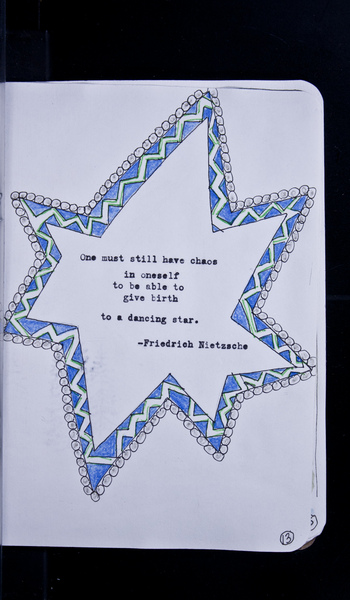 One must still have chaos
in oneself
to be able to
give birth
to a dancing star.
-Friedrich Nietzsche
13